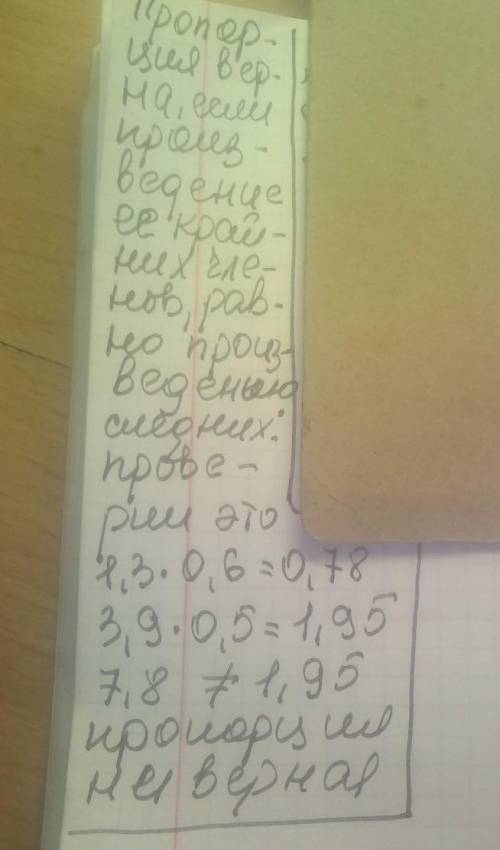 Пропор-
ция вер-
на, если
произ-
ведение
её край-
них чле-
нов, рав-
но произ-
ведению
средних:
прове-
рим это
1,3·0,6=0,78
3,9·0,5=1,95
7,8 ≠ 1,95
пропорция
не верная